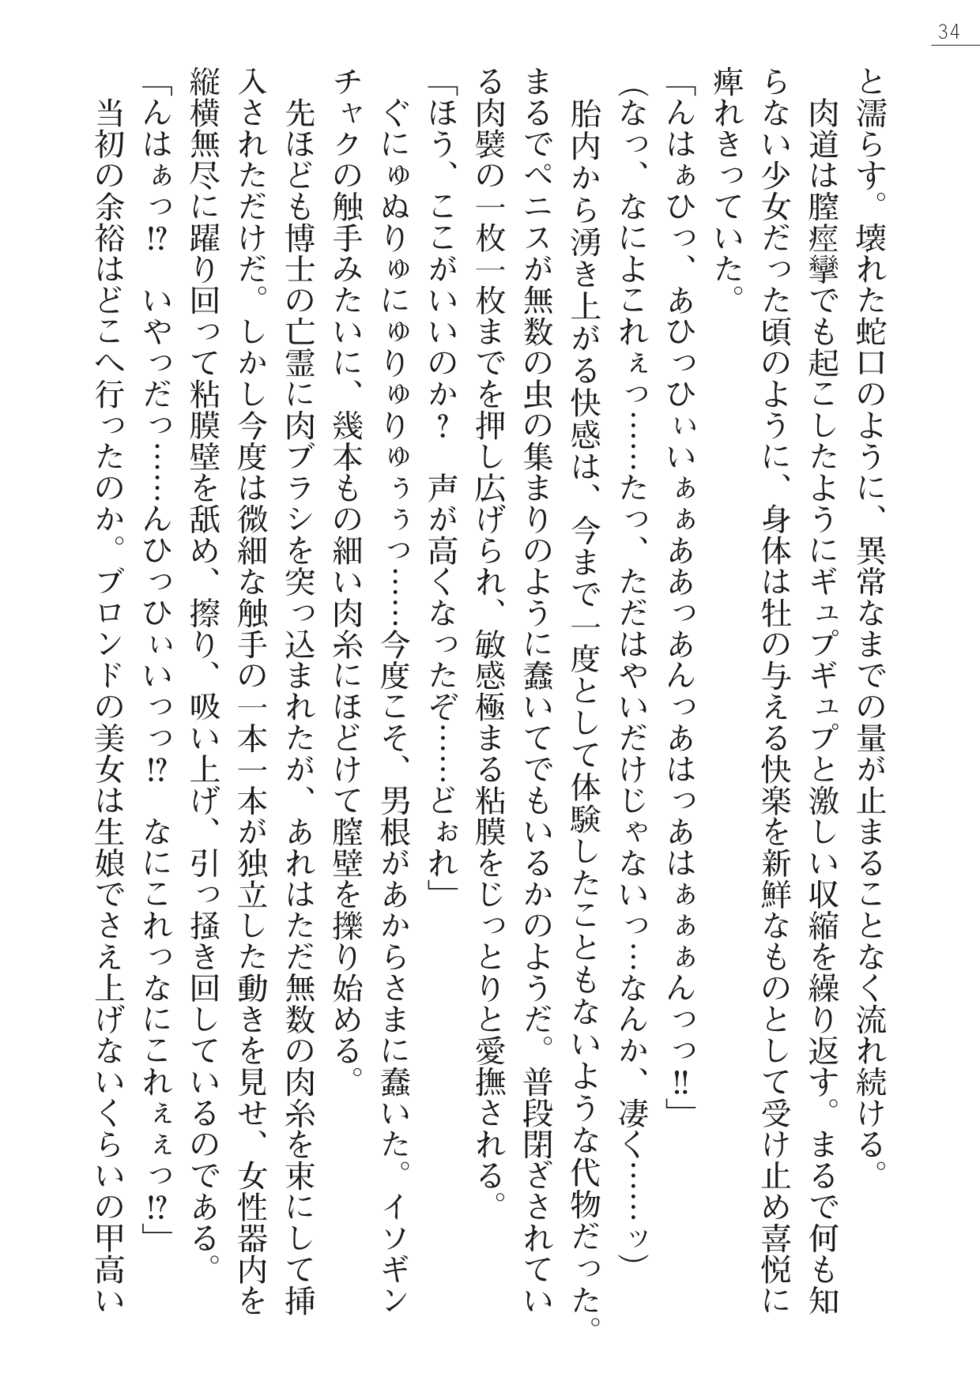 34
と濡らす。壊れた蛇口のように、異常なまでの量が止まることなく流れ続ける。
肉道は膣痙攣でも起こしたようにギュプギュプと激しい収縮を繰り返す。まるで何も知
らない少女だった頃のように、身体は牡の与える快楽を新鮮なものとして受け止め喜悦に
痺れきっていた。
「んはぁひっ、あひっひぃいぁぁああっあんっあはっあはぁぁぁんっっ!!」
(なっ、なによこれぇっ……たっ、ただはやいだけじゃないっ…なんか、凄く……ッ)
胎内から湧き上がる快感は、今まで一度として体験したこともないような代物だった。
まるでペニスが無数の虫の集まりのように蠢いてでもいるかのようだ。普段閉ざされてい
る肉襞の一枚一枚までを押し広げられ、敏感極まる粘膜をじっとりと愛撫される。
「ほう、ここがいいのか?　声が高くなったぞ……どぉれ」
ぐにゅぬりゅにゅりゅりゅぅぅっ……今度こそ、男根があからさまに蠢いた。イソギン
チャクの触手みたいに、幾本もの細い肉糸にほどけて膣壁を擽り始める。
先ほども博士の亡霊に肉ブラシを突っ込まれたが、あれはただ無数の肉糸を束にして挿
入されただけだ。しかし今度は微細な触手の一本一本が独立した動きを見せ、女性器内を
縦横無尽に躍り回って粘膜壁を舐め、擦り、吸い上げ、引っ掻き回しているのである。
「んはぁっ!?　いやっだっ……んひっひぃいっっ!?　なにこれっなにこれぇぇっ!?」
当初の余裕はどこへ行ったのか。ブロンドの美女は生娘でさえ上げないくらいの甲高い